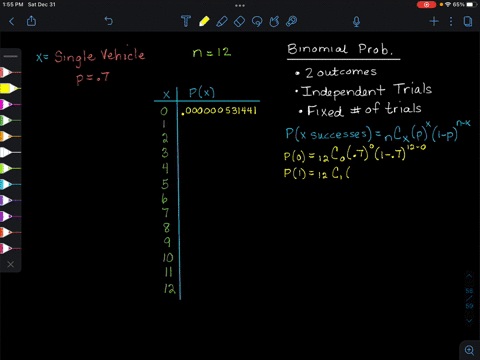 1:55 PM Sat Dec 31
65%
x = Single Vehicle
p = .7
n = 12
x P(x)
0 .000000531441
1
2
3
4
5
6
7
8
9
10
11
12
Binomial Prob.
• 2 outcomes
• Independent Trials
• Fixed # of trials
P(x successes) = nCx(p)^x(1-p)^n-x
P(0) = 12C0(.7)^0(1-.7)^12-0
P(1) = 12C1(
58
59